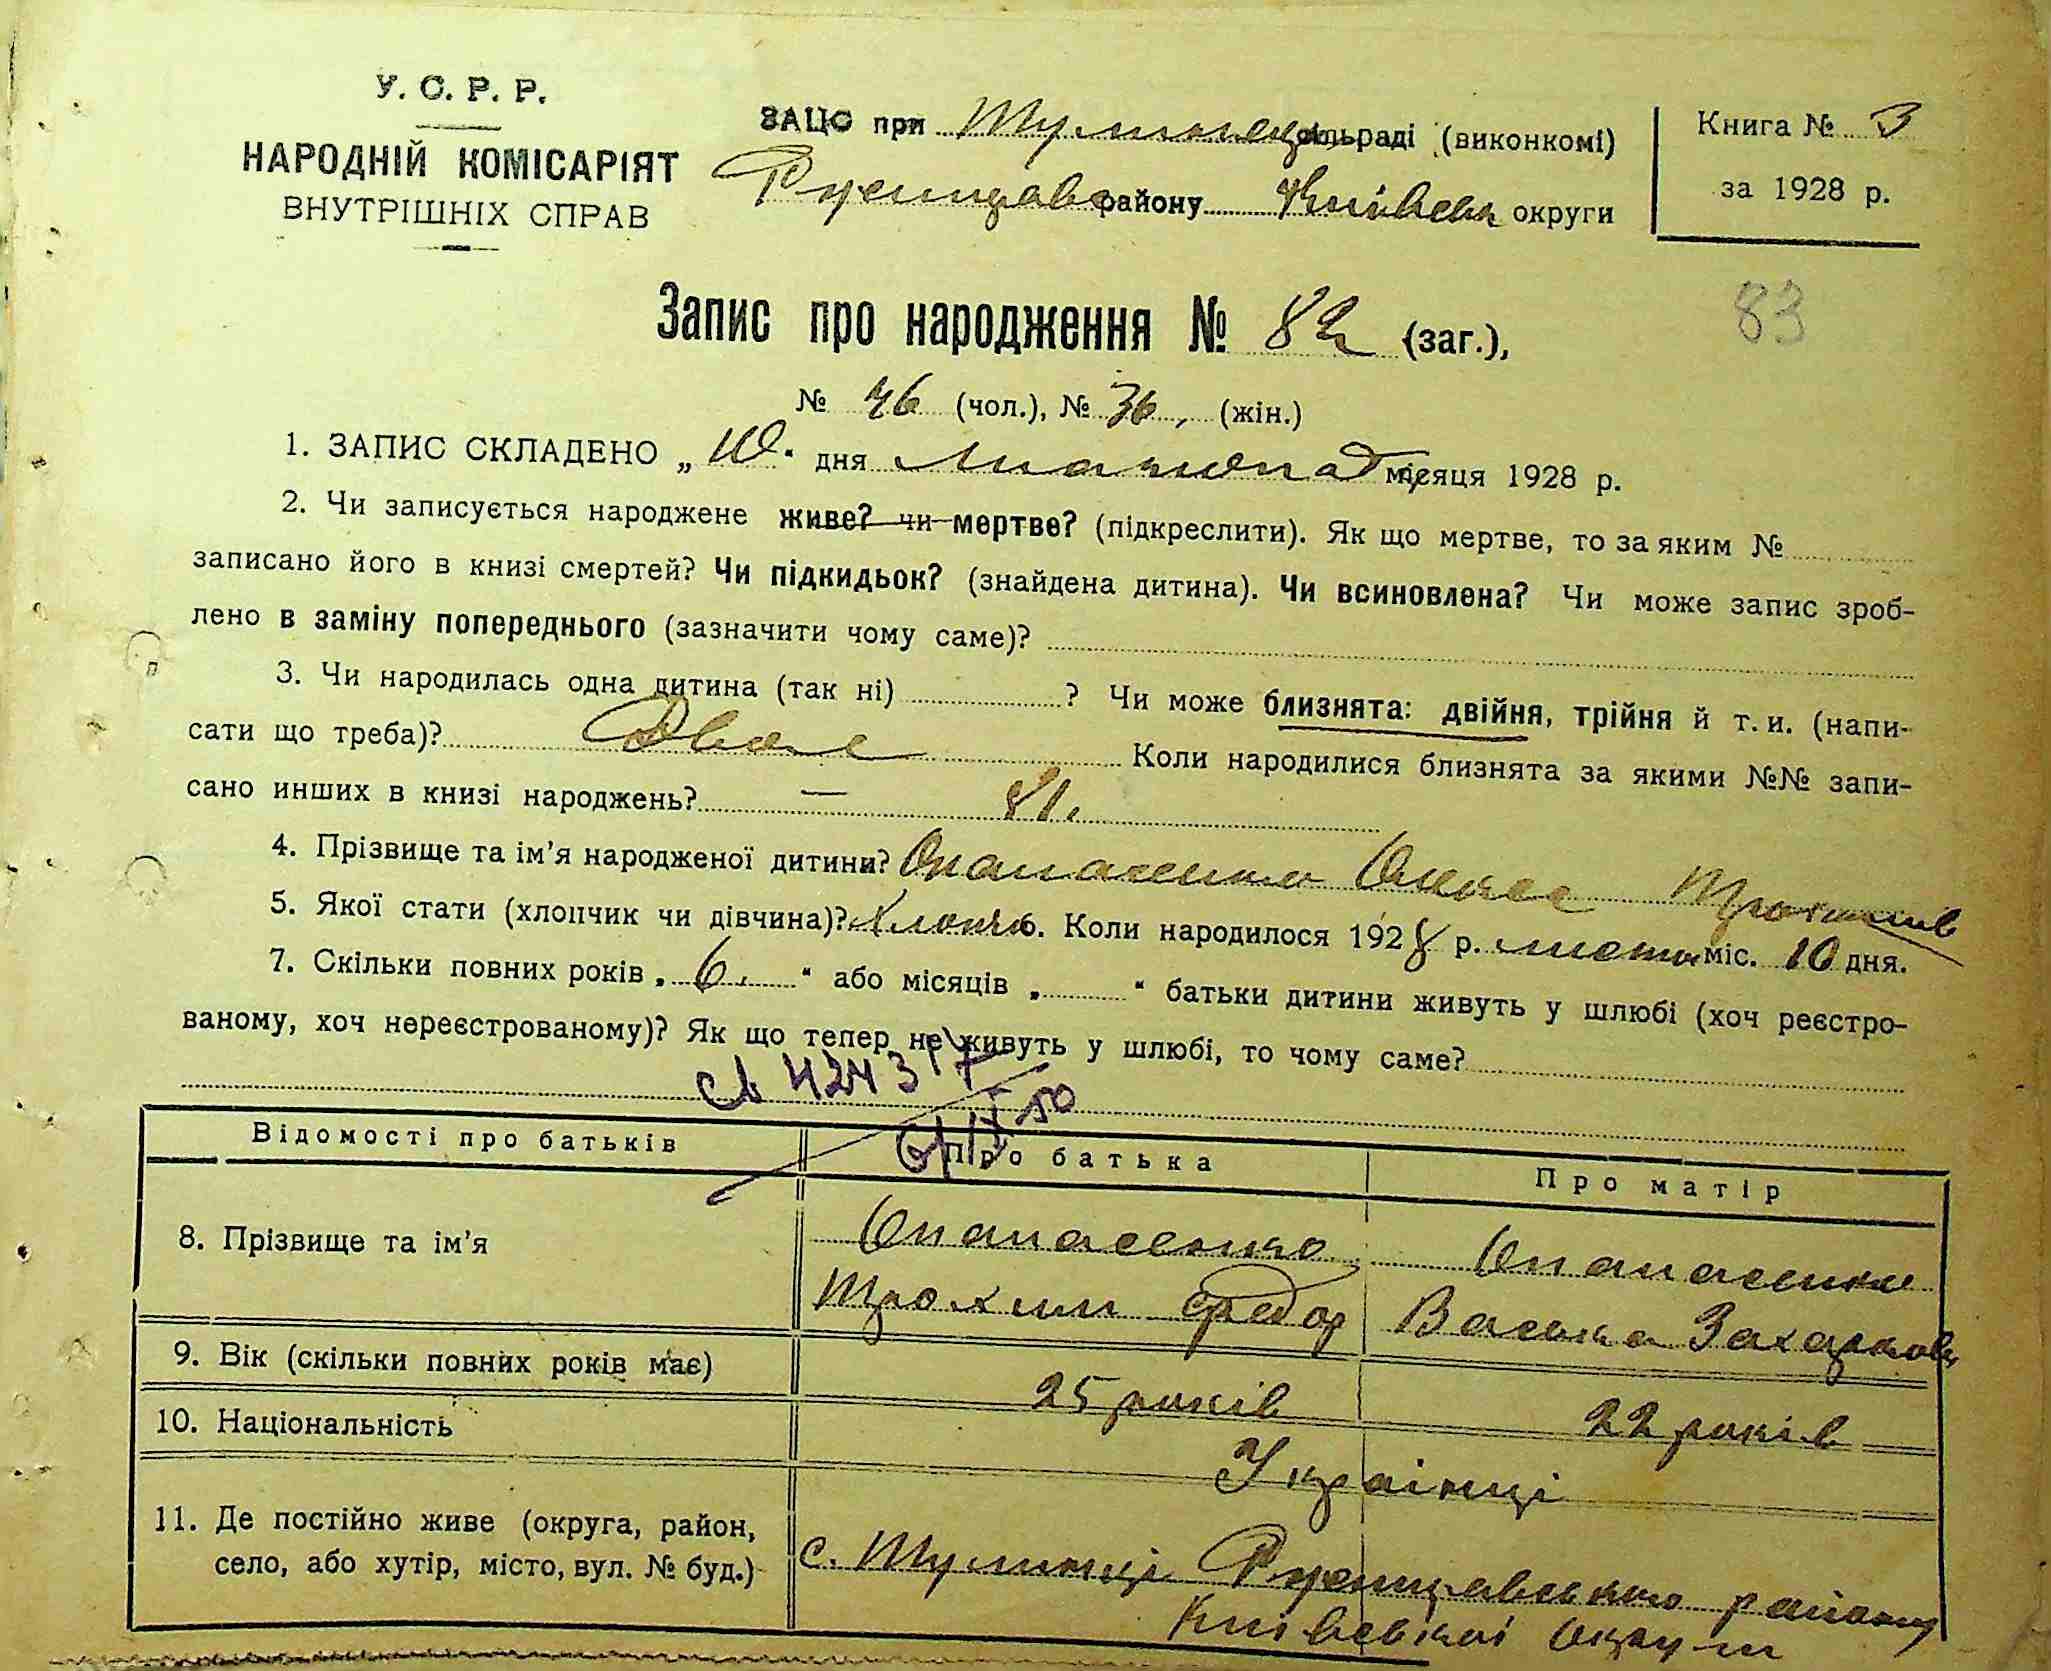 У. С. Р. Р.
НАРОДНІЙ КОМІСАРІЯТ
ВНУТРІШНІХ СПРАВ
ЗАЦС при Тулинецк сільраді (виконкомі)
Ржищевс району Київськ округи
Книга № 3
за 1928 р.
83
Запис про народження № 82 (заг.),
№ 46 (чол.), № 36, (жін.)
1. ЗАПИС СКЛАДЕНО „10." дня листопад місяця 1928 р.
2. Чи записується народжене живе? чи мертве? (підкреслити). Як що мертве, то за яким №
записано його в книзі смертей? Чи підкидьок? (знайдена дитина). Чи всиновлена? Чи може запис зроб-
лено в заміну попереднього (зазначити чому саме)?
3. Чи народилась одна дитина (так ні) ? Чи може близнята: двійня, трійня й т. и. (напи-
сати що треба)? Двоє Коли народилися близнята за якими №№ запи-
сано инших в книзі народжень? — 81.
4. Прізвище та ім'я народженої дитини? Опанасенко Трохимів
5. Якої стати (хлопчик чи дівчина)? Хлопчик 6. Коли народилося 1928 р. листоп міс. 10 дня.
7. Скільки повних років „ 6. " або місяців „ " батьки дитини живуть у шлюбі (хоч реєстро-
ваному, хоч нереєстрованому)? Як що тепер не живуть у шлюбі, то чому саме?
Відомості про батьків Про батька Про матір
8. Прізвище та ім'я Опанасенко Опанасенко
Трохим Федор Васька Захарков
9. Вік (скільки повних років має) 25 років 22 років
10. Національність Українці
11. Де постійно живе (округа, район,
село, або хутір, місто, вул. № буд.) с. Тулинці Ржищевського району
Київської округи